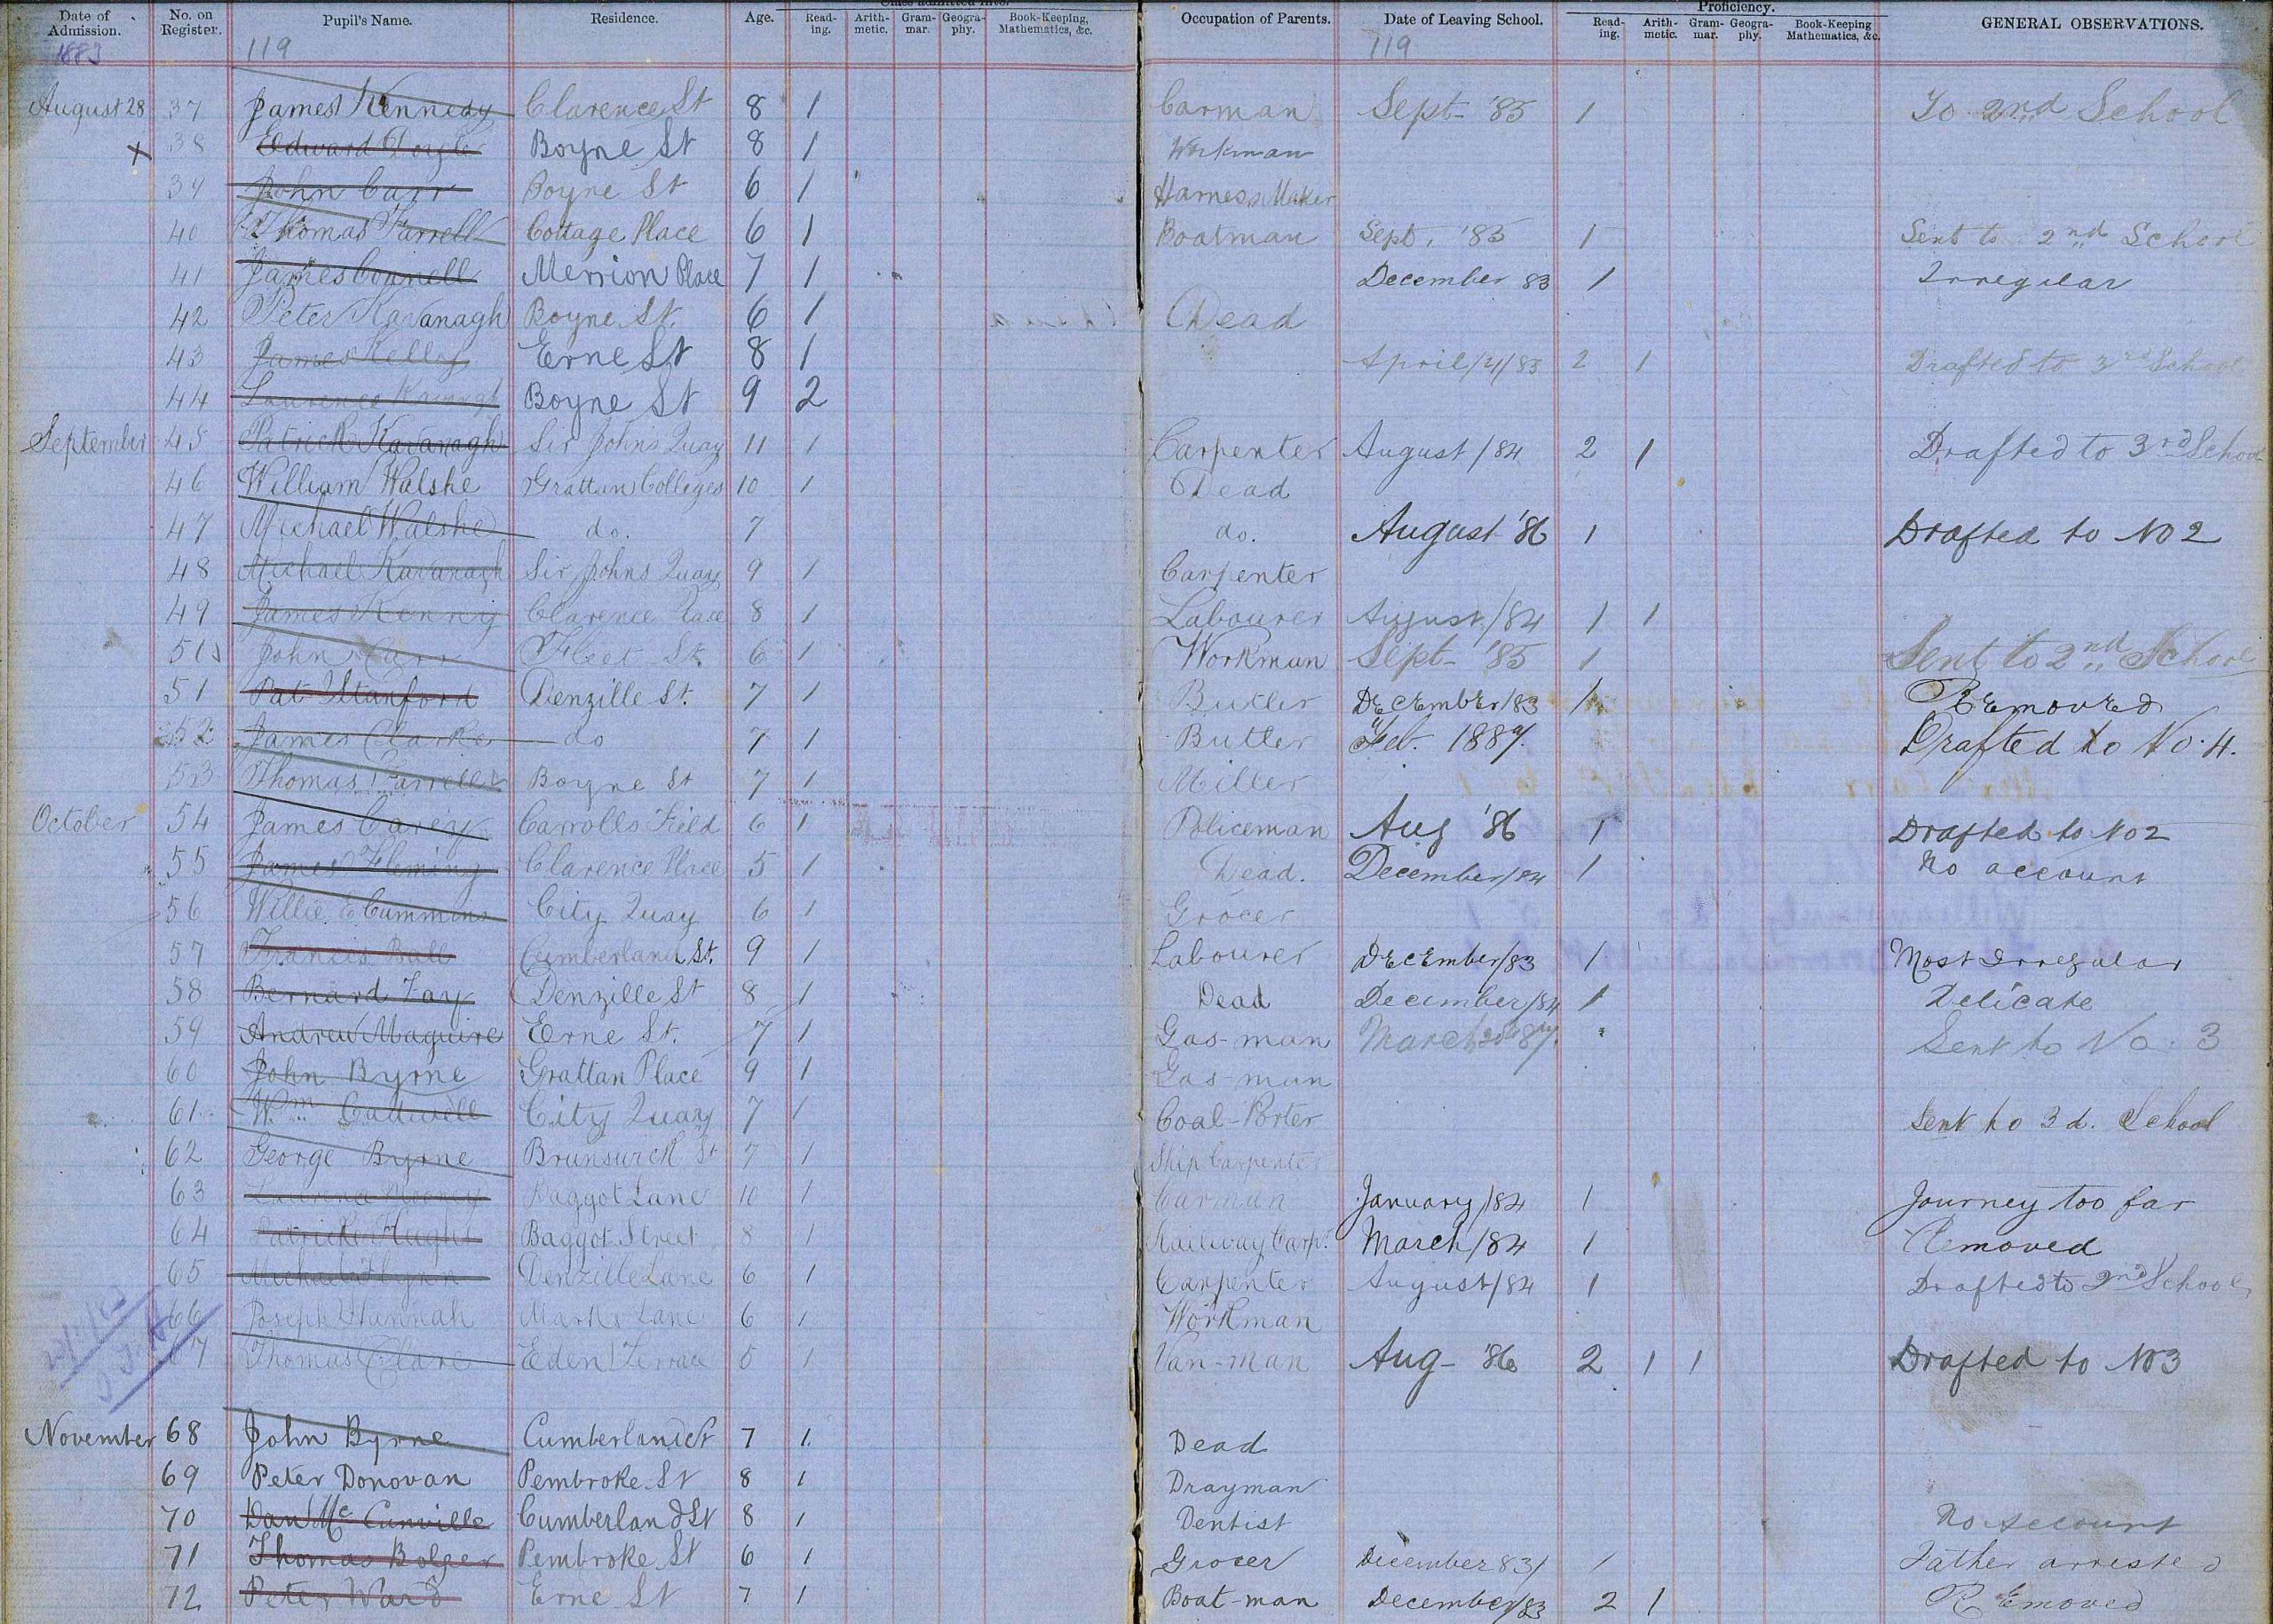 Date of Admission. No. on Register. Pupil's Name. Residence. Age. Class admitted into. Reading. Arithmetic. Grammar. Geography. Book-Keeping, Mathematics, &c. Occupation of Parents. Date of Leaving School. Proficiency. Reading. Arithmetic. Grammar. Geography. Book-Keeping Mathematics, &c. GENERAL OBSERVATIONS.
1883 119 119
August 28 37 James Kennedy Clarence St 8 1 Carman Sept- '85 1 To 2nd School
x 38 Edward Boyne St 8 1 Workman
39 John Carr Boyne St 6 1 Harness Maker
40 Thomas Farrell Cottage Place 6 1 Boatman Sept, '85 1 Sent to 2nd School
41 James Connell Merrion Place 7 1 December 83 1 Irregular
42 Peter Kavanagh Boyne St. 6 1 Dead
43 James Kelly Erne St 8 1 April/21/85 2 1 Drafted to 3rd School
44 Laurence Boyne St 9 2
September 45 Patrick Kavanagh Sir Johns Quay 11 1 Carpenter August/84 2 1 Drafted to 3rd School
46 William Walshe Grattan Colleges 10 1 Dead
47 Michael Walshe do. 7 do. August '86 1 Drafted to No 2
48 Michael Kavanagh Sir Johns Quay 9 1 Carpenter
49 James Kenny Clarence Place 8 1 Labourer August/84 1 1
John Carr Fleet St. 6 1 Workman Sept- '85 1 Sent to 2nd School
51 Pat Stanford Denzille St. 7 1 Butler December/83 1 Removed
52 James Clarke do 7 1 Butler Feb. 1887. Drafted to No. 4.
53 Thomas Farrell Boyne St 7 1 Miller
October 54 James Carey Carrolls Field 6 1 Policeman Aug '86 1 Drafted to No 2
55 James Fleming Clarence Place 5 1 Dead. December/84 1 No account
56 Willie E Cummins City Quay 6 1 Grocer
57 Francis Ball Cumberland St. 9 1 Labourer December/83 1 Most Irregular
58 Bernard Fay Denzille St 8 1 Dead December/84 1 Delicate
59 Andrew Maguire Erne St. 7 1 Gas-man March 87. Sent to No. 3
60 John Byrne Grattan Place 9 1 Gas-man
61 Wm. Caldwell City Quay 7 1 Coal-Porter Sent to 3d. School
62 George Byrne Brunswick St 7 1 Ship Carpenter
63 Rooney Baggot Lane 10 1 Carman January/84 1 Journey too far
64 Patrick Hughes Baggot Street 8 1 Railway Carpr. March/84 1 Removed
65 Michael Flynn Denzille Lane 6 1 Carpenter August/84 1 Drafted to 2nd School
66 Joseph Hannah Marks Lane 6 1 Workman
67 Thomas Clare Eden Terrace 5 1 Van-man Aug- '86 2 1 1 Drafted to No 3
November 68 John Byrne Cumberland St 7 1. Dead
69 Peter Donovan Pembroke St 8 1 Drayman
70 Dan Mc Canville Cumberland St 8 1 Dentist No Account
71 Thomas Bolger Pembroke St 6 1 Grocer December 83/ 1 Father arrested
72 Peter Ward Erne St 7 1 Boat-man December/83 2 1 Removed